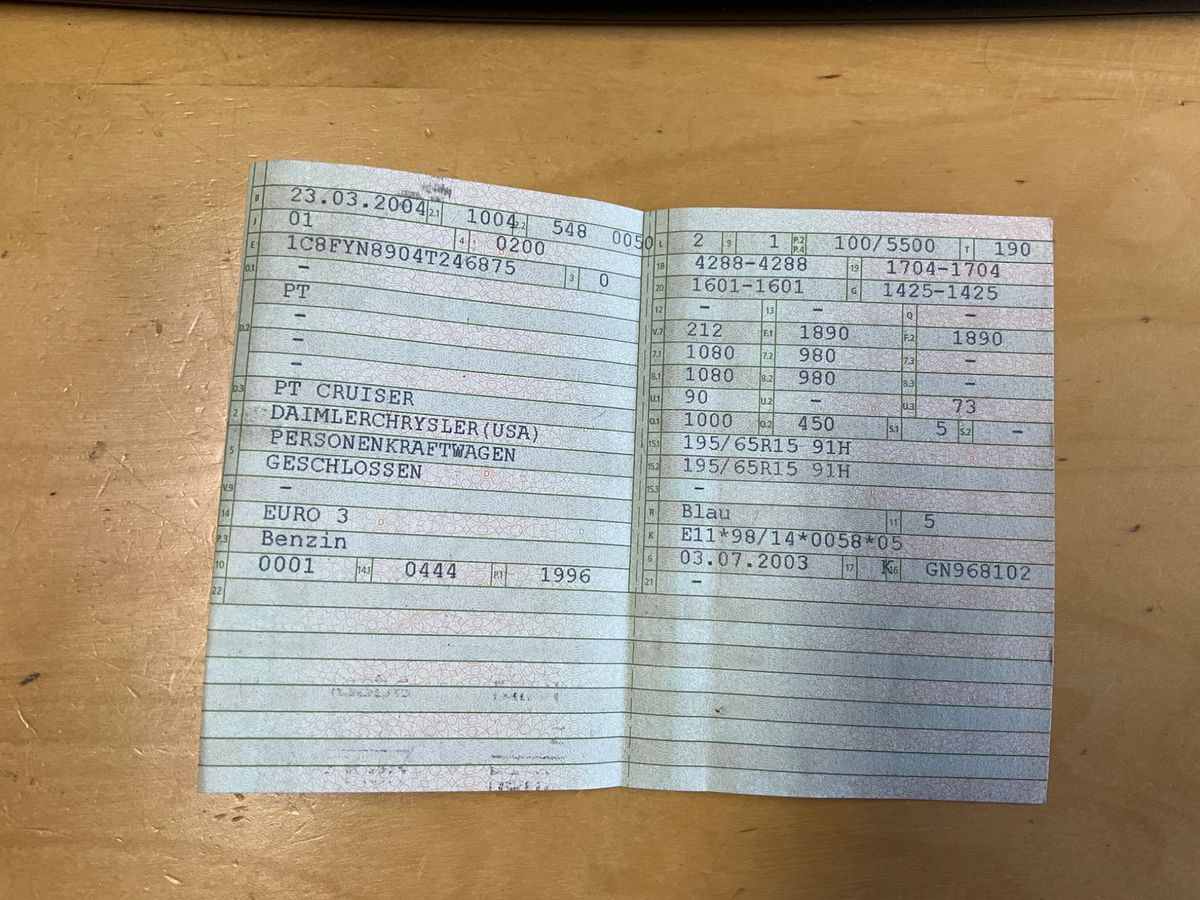 B 23.03.2004 2.1 1004 2.2 548 0050
J 01 4 0200
E 1C8FYN8904T246875 3 0
D.1 –
PT
–
D.2 –
–
D.3 PT CRUISER
2 DAIMLERCHRYSLER(USA)
5 PERSONENKRAFTWAGEN
GESCHLOSSEN
V.9 –
14 EURO 3
P.3 Benzin
10 0001 14.1 0444 P.1 1996
22
L 2 9 1 P.2 P.4 100/5500 T 190
18 4288-4288 19 1704-1704
20 1601-1601 G 1425-1425
12 – 13 – Q –
V.7 212 F.1 1890 F.2 1890
7.1 1080 7.2 980 7.3 –
8.1 1080 8.2 980 8.3 –
U.1 90 U.2 – U.3 73
O.1 1000 O.2 450 S.1 5 S.2 –
15.1 195/65R15 91H
15.2 195/65R15 91H
15.3 –
R Blau 11 5
K E11*98/14*0058*05
6 03.07.2003 17 K 16 GN968102
21 –